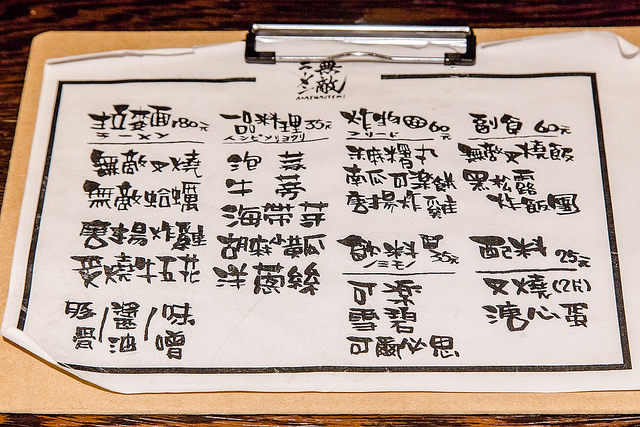 無敵
ラーメン
拉麵 180元
ラーメン
無敵叉燒
無敵蛤蠣
唐揚炸雞
炙燒牛五花
豚骨/醬油/味噌
一品料理 35元
泡菜
牛蒡
海帶芽
胡麻黃瓜
洋蔥絲
炸物 60元
フリード
南瓜可樂餅
唐揚炸雞
飲料 35元
ノミモノ
可樂
雪碧
可爾必思
副食 60元
無敵叉燒飯
黑松露
炸飯團
配料 25元
叉燒(2片)
溏心蛋